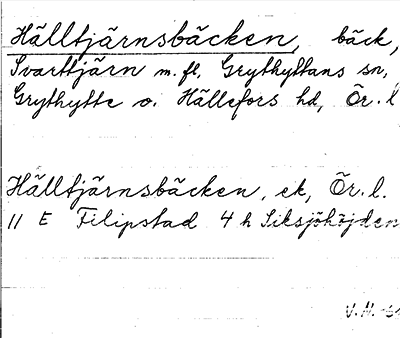 Hälltjärnsbäcken, bäck,
Svarttjärn m. fl. Grythyttans sn,
Grythytte o. Hällefors hd, Ör. l
Hälltjärnsbäcken, ek, Ör. l.
11 E Filipstad 4 h Siksjöhöjden
V. N.